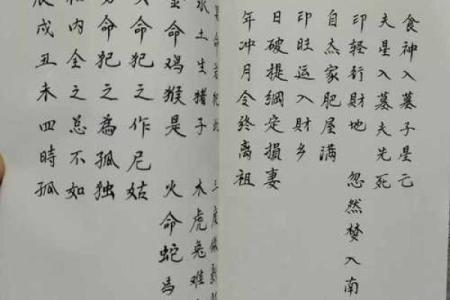 食神入墓子星亡
夫星入墓夫先死
印轻行財地 忽然梦入南
自杰家肥屋满
印旺运入財乡
日破提綱定損妻
年冲月令终离祖
土生猪子 木虎兔难
命鸡猴是 火命蛇
命犯之作尼姑
命犯之為孤独
内全之总不如
戌丑未四時孤